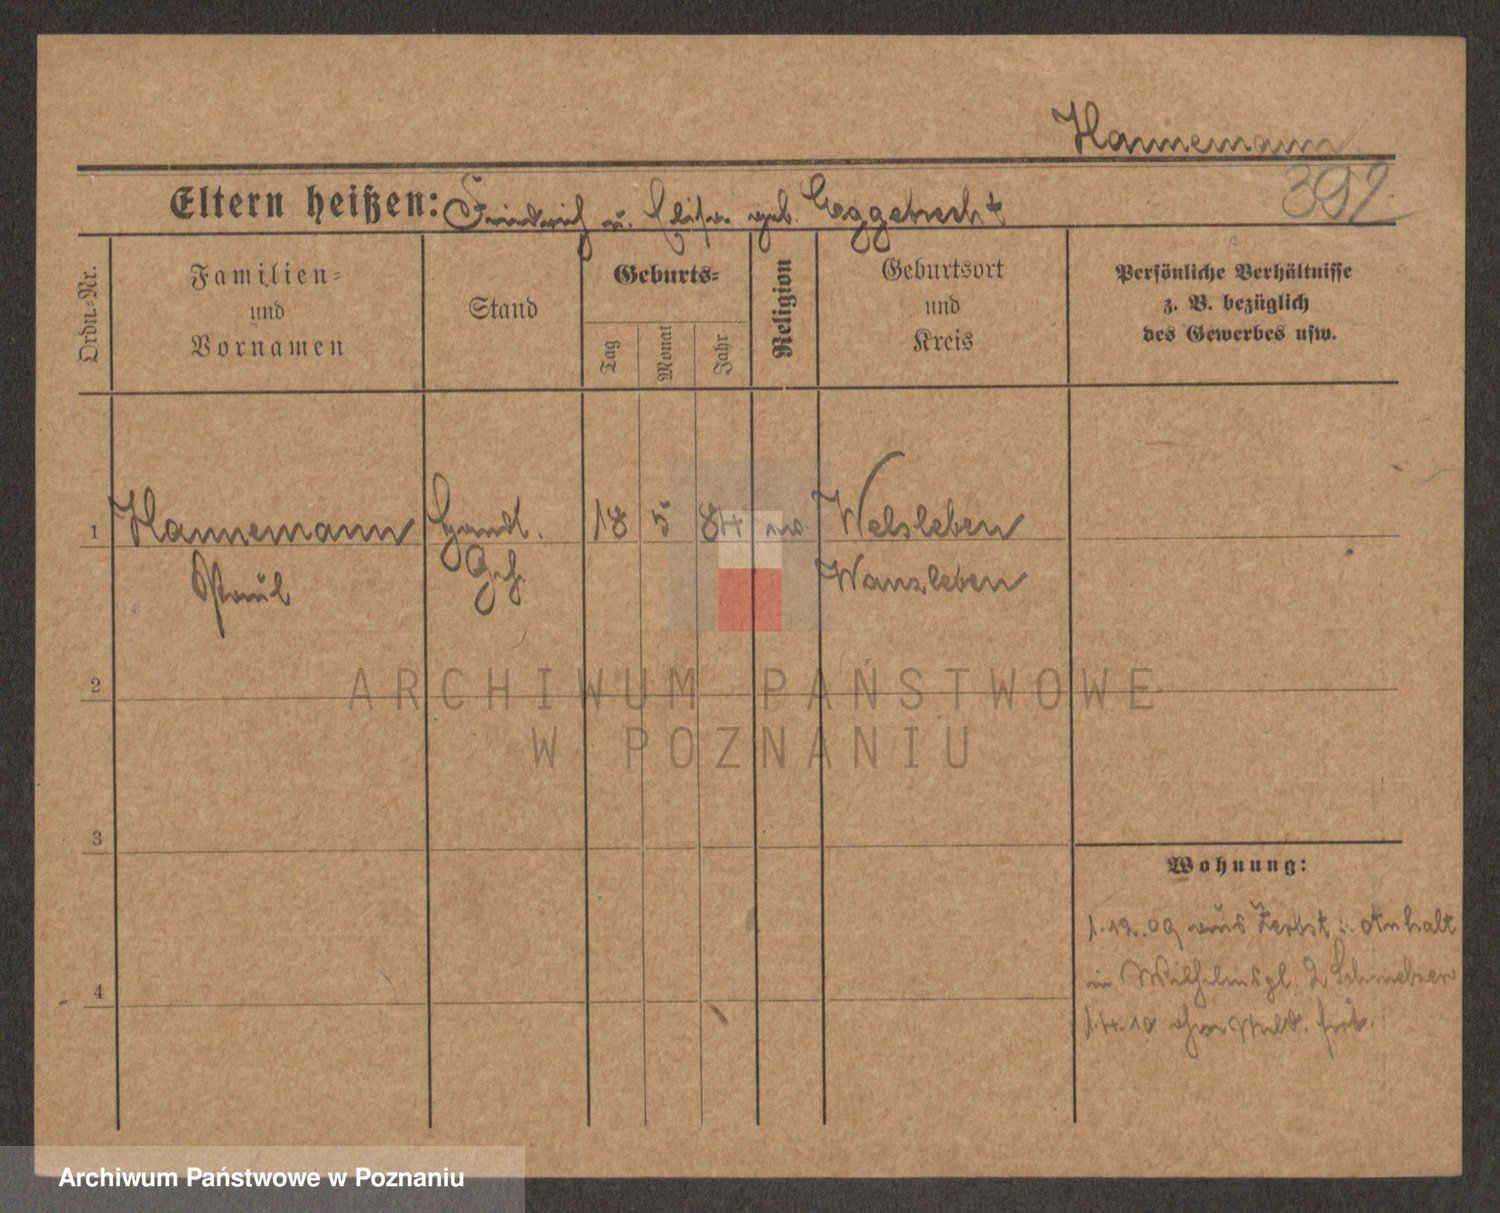 Hannemann
392
Eltern heißen: Friedrich u. Elise geb. Eggebrecht
Ordn.-Nr.
Familien-
und
Vornamen
Stand
Geburts-
Tag
Monat
Jahr
Religion
Geburtsort
und
Kreis
Persönliche Verhältnisse
z. B. bezüglich
des Gewerbes usw.
1 Hannemann Handl. 18 5 84 ev. Welsleben
Paul Geh. Wanzleben
2
3
4
Wohnung:
1.12.09 aus Zerbst i. Anhalt
in Wilhelmspl. 2
1.4.10 ohne Meld. fort.
ARCHIWUM PAŃSTWOWE
W POZNANIU
Archiwum Państwowe w Poznaniu